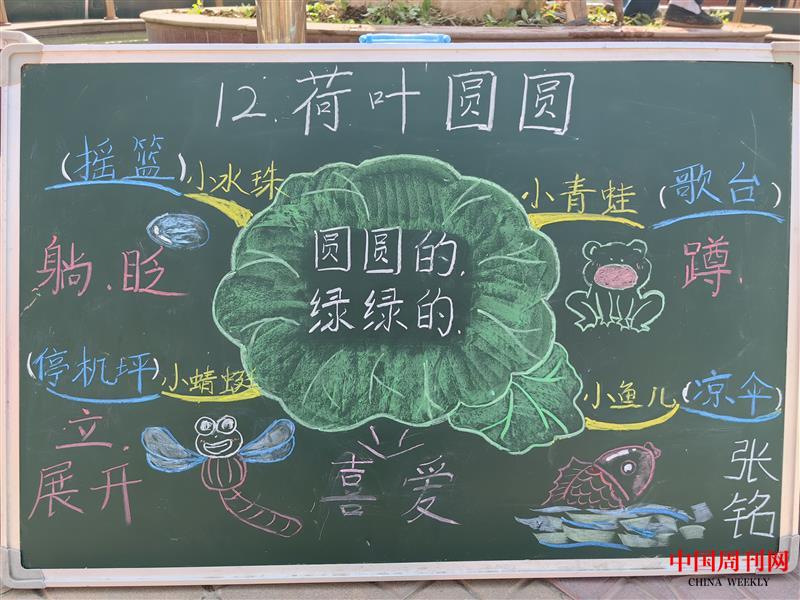 12.荷叶圆圆
(摇篮)小水珠
小青蛙(歌台)
躺.眨
圆圆的.
绿绿的.
蹲.
(停机坪)小蜻蜓
小鱼儿(凉伞)
立.
展开
喜爱
张铭
中国周刊网
CHINA WEEKLY